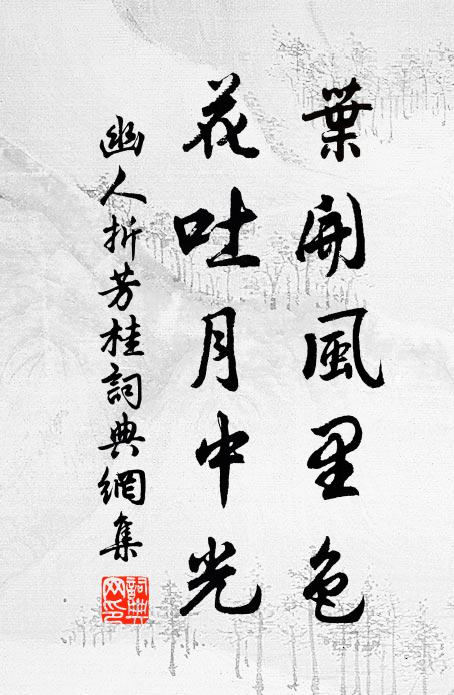 葉開風里色
花吐月中光
幽人折芳桂詞典網集
詞典網印